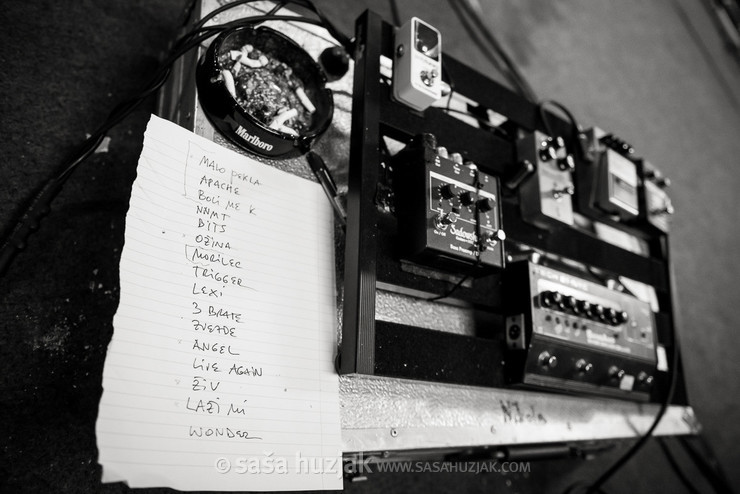 Marlboro
MALO PEKLA
APACHE
BOLI ME K
NNMT
BITS
OŽINA
MORILEC
TRIGGER
LEXI
3 BRATE
ZVEZDE
ANGEL
LIVE AGAIN
ŽIV
LAŽI MI
WONDER
Sadowsky
© saša huzjak WWW.SASAHUZJAK.COM